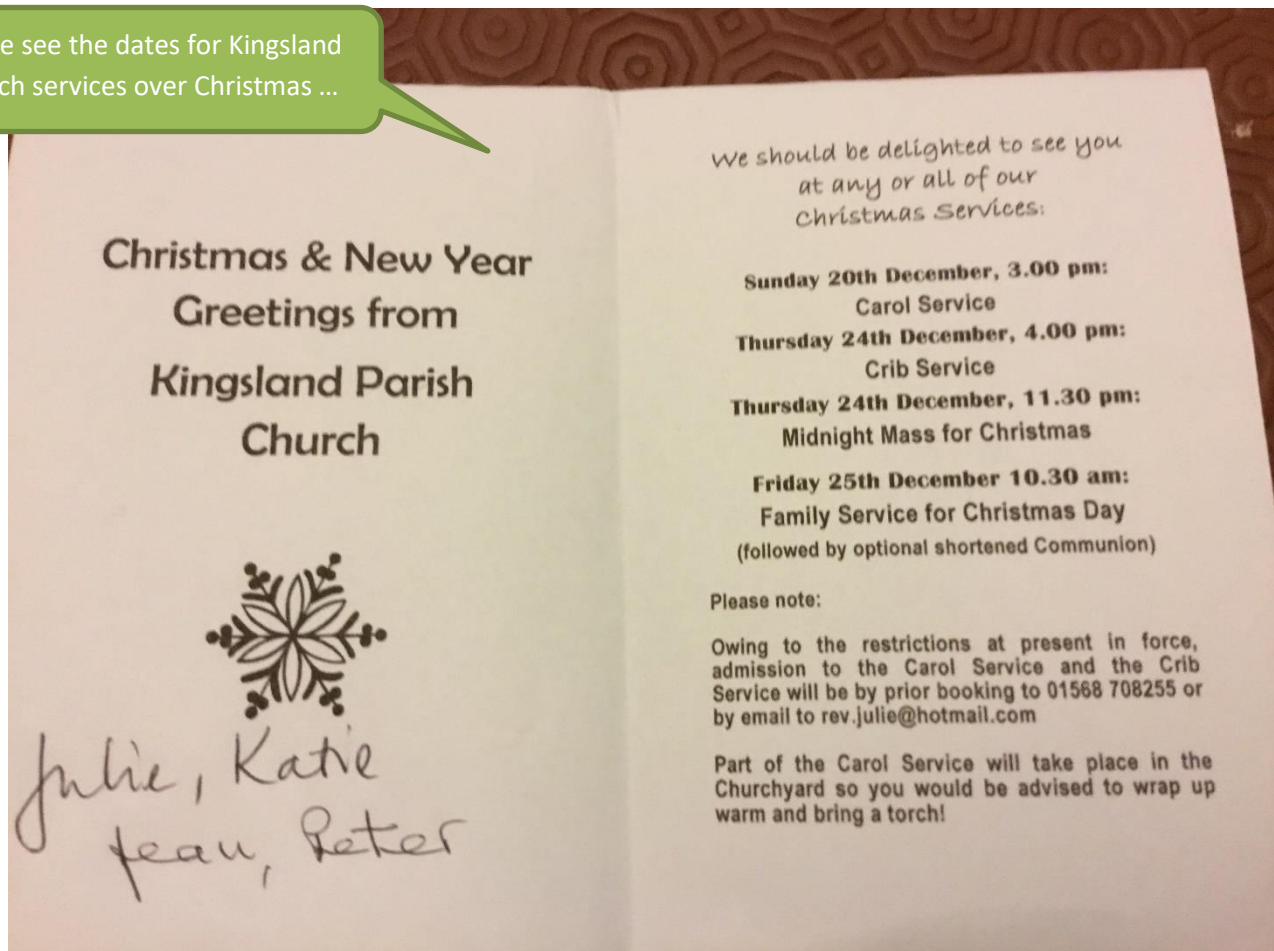 e see the dates for Kingsland
ch services over Christmas ...
Christmas & New Year
Greetings from
Kingsland Parish
Church
Julie, Katie
Jean, Peter
We should be delighted to see you
at any or all of our
Christmas Services:
Sunday 20th December, 3.00 pm:
Carol Service
Thursday 24th December, 4.00 pm:
Crib Service
Thursday 24th December, 11.30 pm:
Midnight Mass for Christmas
Friday 25th December 10.30 am:
Family Service for Christmas Day
(followed by optional shortened Communion)
Please note:
Owing to the restrictions at present in force,
admission to the Carol Service and the Crib
Service will be by prior booking to 01568 708255 or
by email to rev.julie@hotmail.com
Part of the Carol Service will take place in the
Churchyard so you would be advised to wrap up
warm and bring a torch!